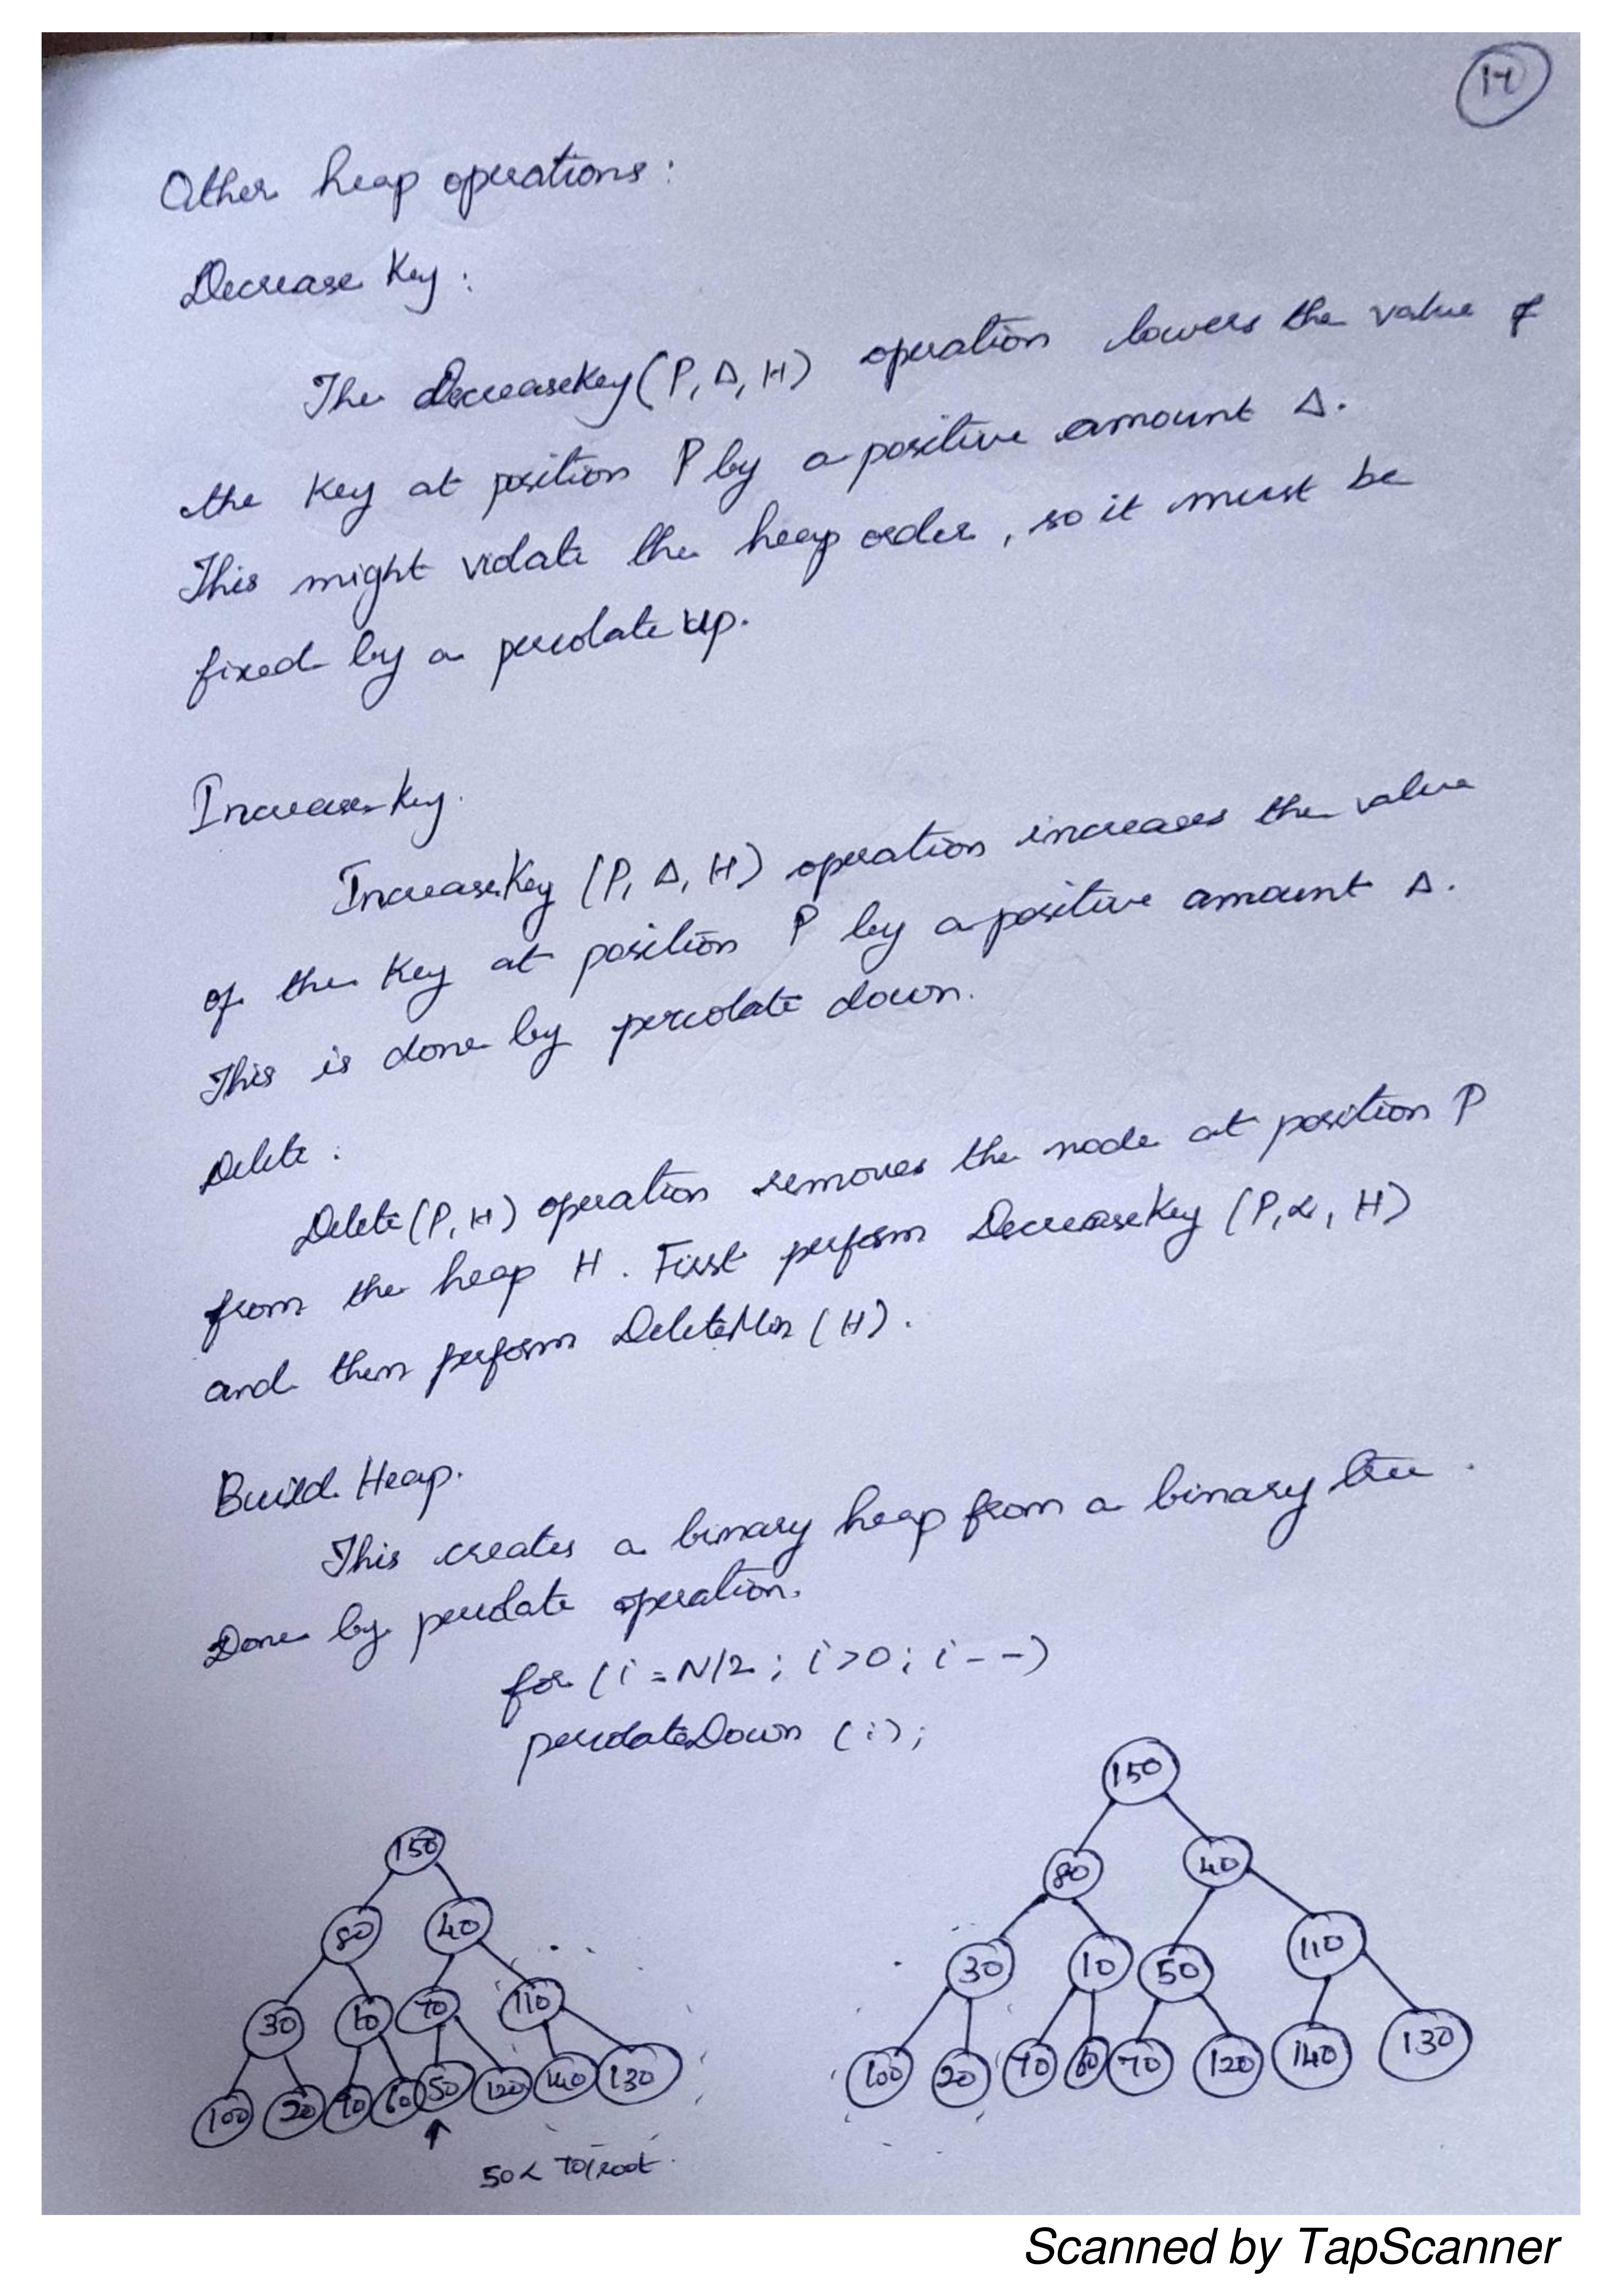 14
Other heap operations :
Decrease Key :
The DecreaseKey (P, Δ, H) operation lowers the value of
the Key at position P by a positive amount Δ.
This might violate the heap order, so it must be
fixed by a percolate up.
Increase Key.
IncreaseKey (P, Δ, H) operation increases the value
of the Key at position P by a positive amount Δ.
This is done by percolate down.
Delete :
Delete (P, H) operation removes the node at position P
from the heap H. First perform DecreaseKey (P, ∝, H)
and then perform DeleteMin (H).
Build Heap.
This creates a binary heap from a binary tree.
Done by percolate operation.
for (i = N/2 ; i > 0 ; i - -)
percolateDown (i);
150
80 40
30 10 70 110
100 20 90 60 50 120 140 130
50 < 70/root
150
80 40
30 10 50 110
100 20 90 60 70 120 140 130
Scanned by TapScanner